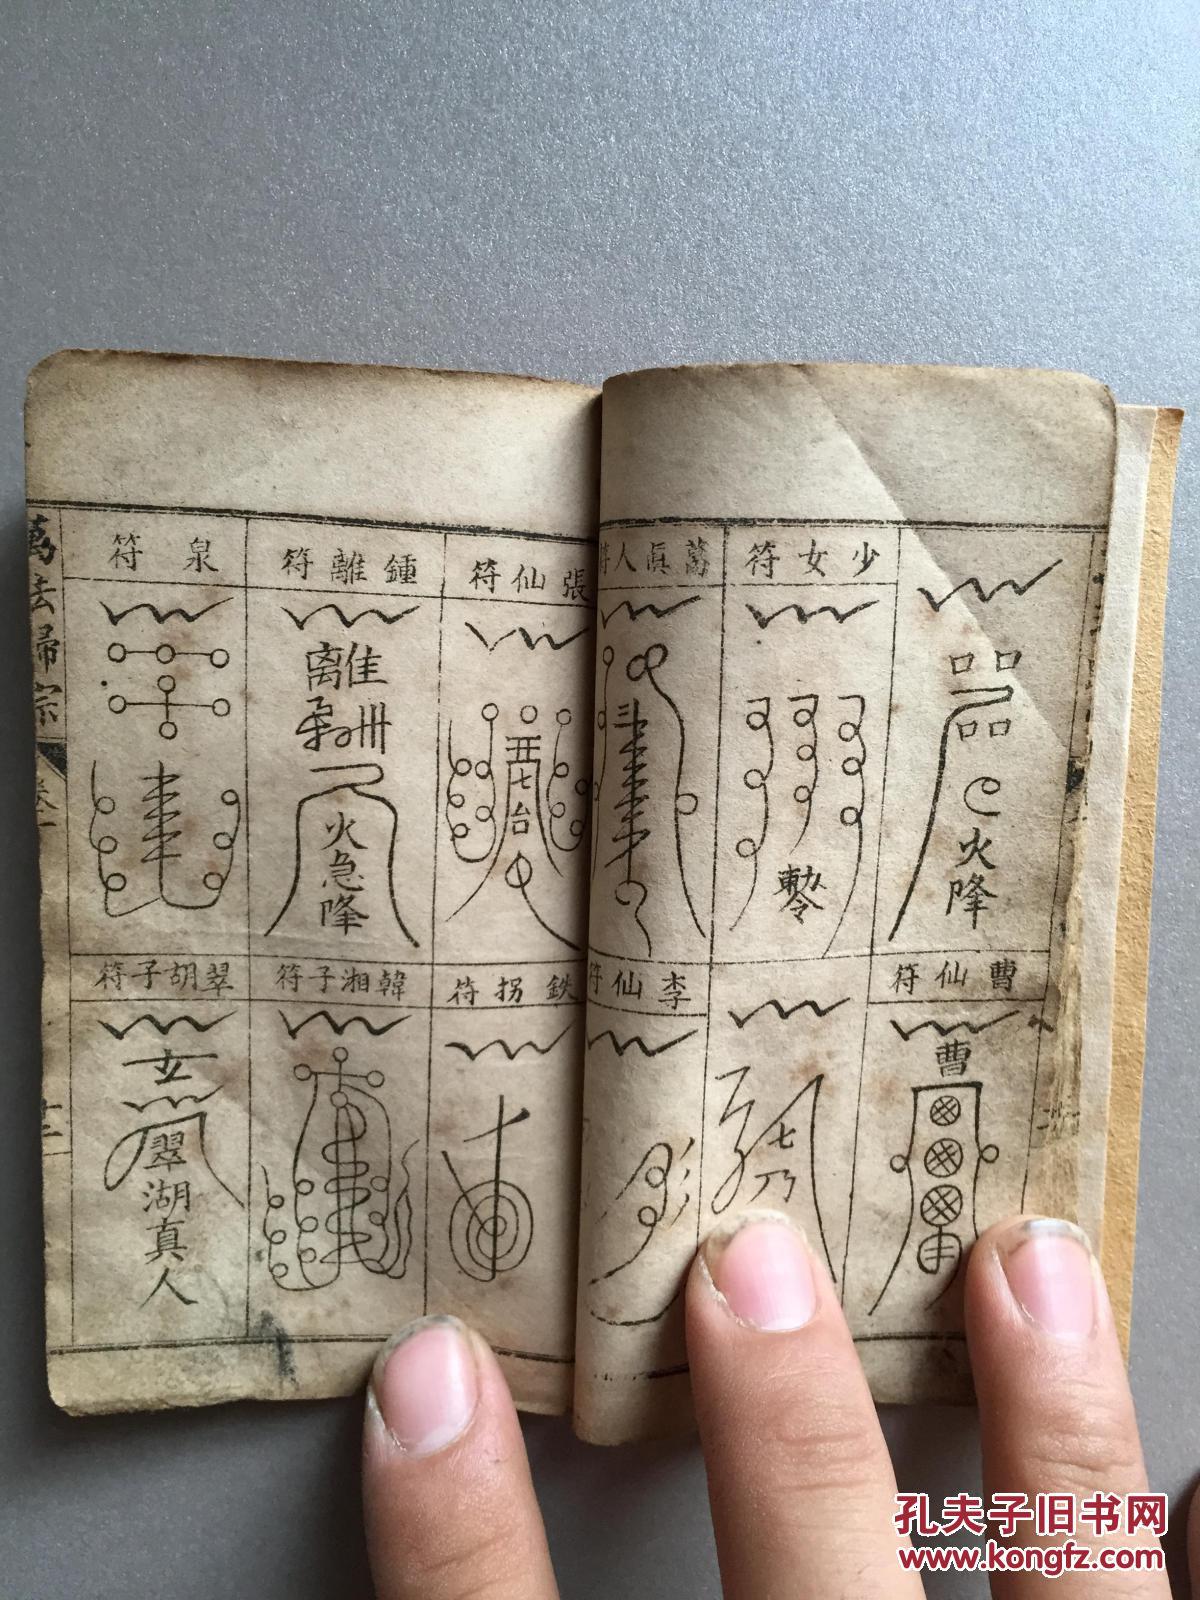 少女符
萬眞人符
張仙符
鍾離符
泉符
曹仙符
李仙符
鉄拐符
韓湘子符
翠胡子符
火降
七台
離
火急降
曹
七乃
翠湖真人
萬法歸宗
卷一
孔夫子旧书网
www.kongfz.com